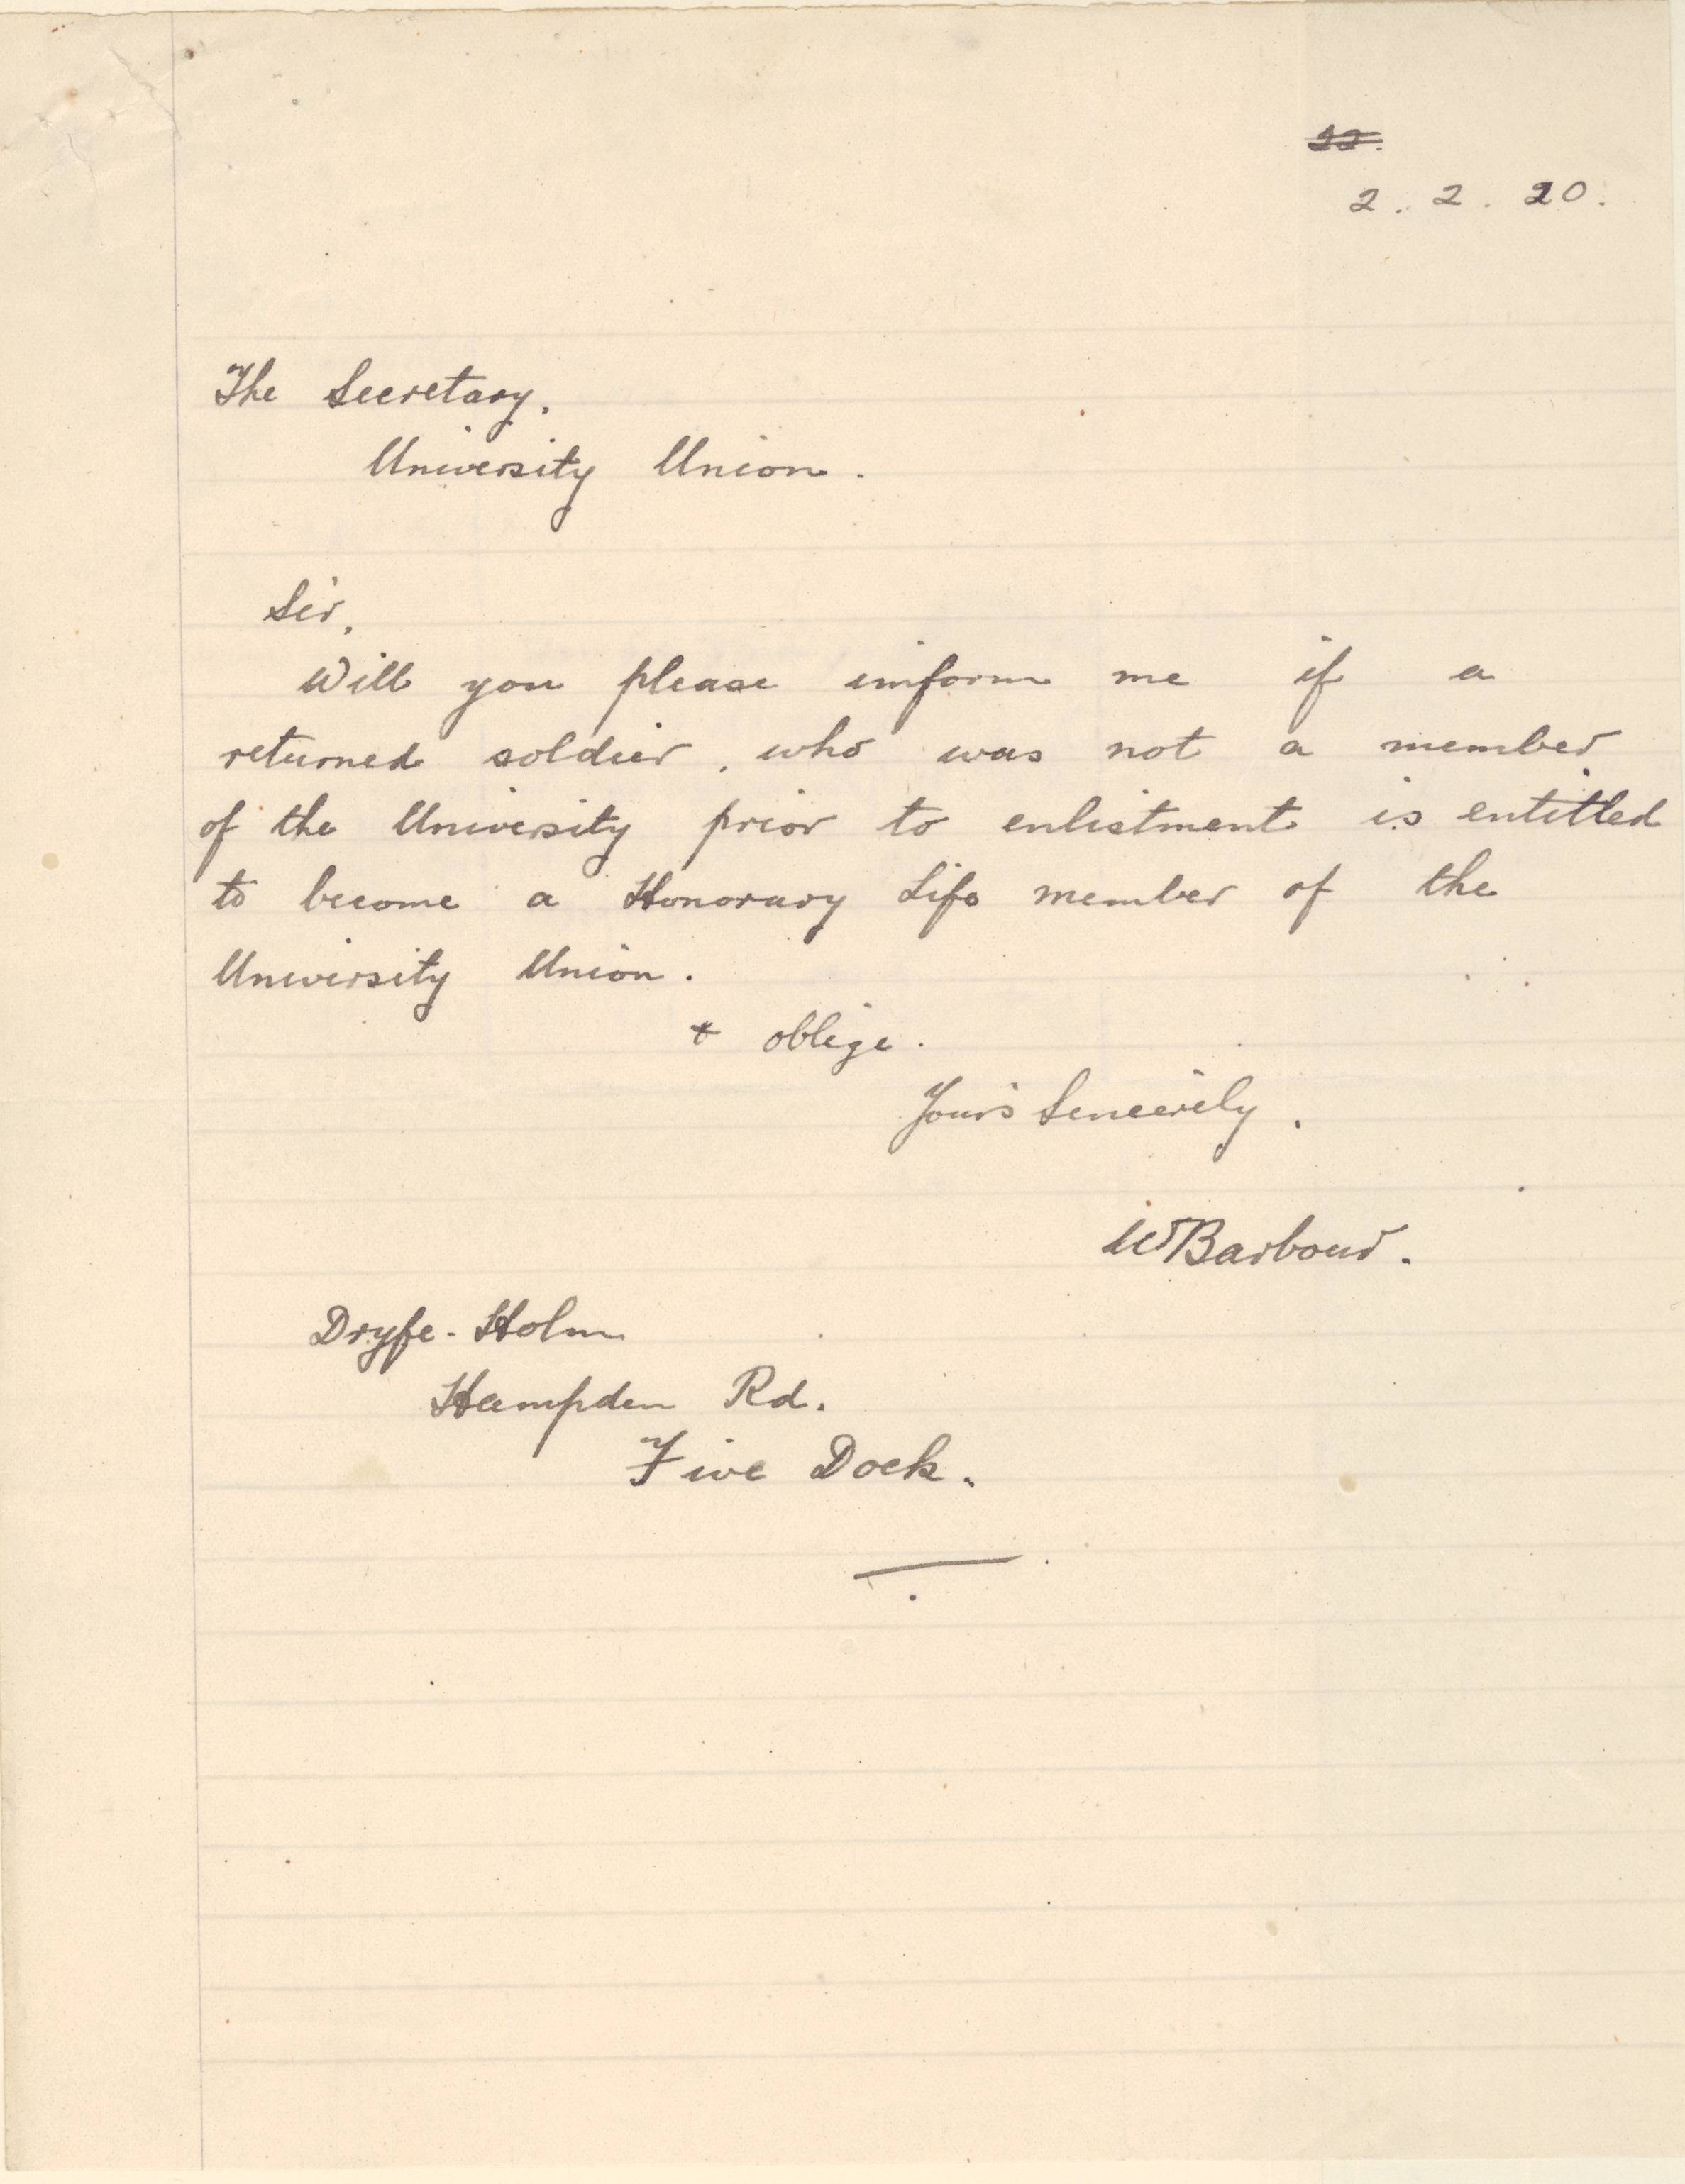 2. 2. 20.
The Secretary.
University Union.
Sir,
Will you please inform me if a
returned soldier, who was not a member
of the University prior to enlistment is entitled
to become a Honorary Life member of the
University Union.
& oblige.
Yours Sincerely,
W Barbour.
Dryfe-Holm
Hampden Rd.
Five Dock.